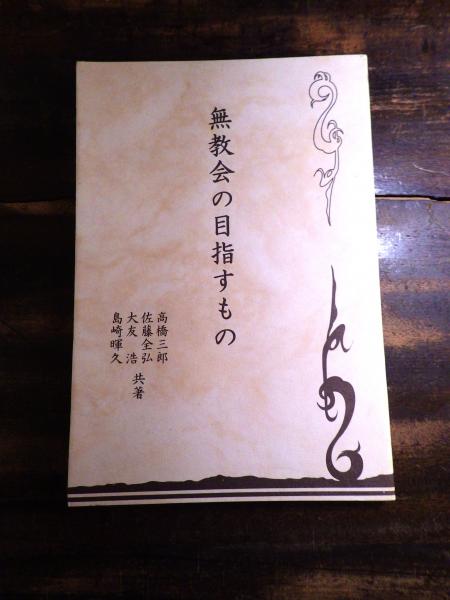 無教会の目指すもの
高橋三郎
佐藤全弘
大友浩
島崎暉久
共著